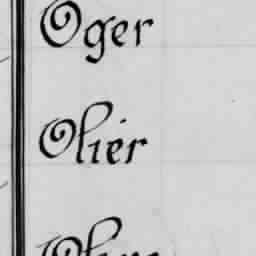 Oger
Olier